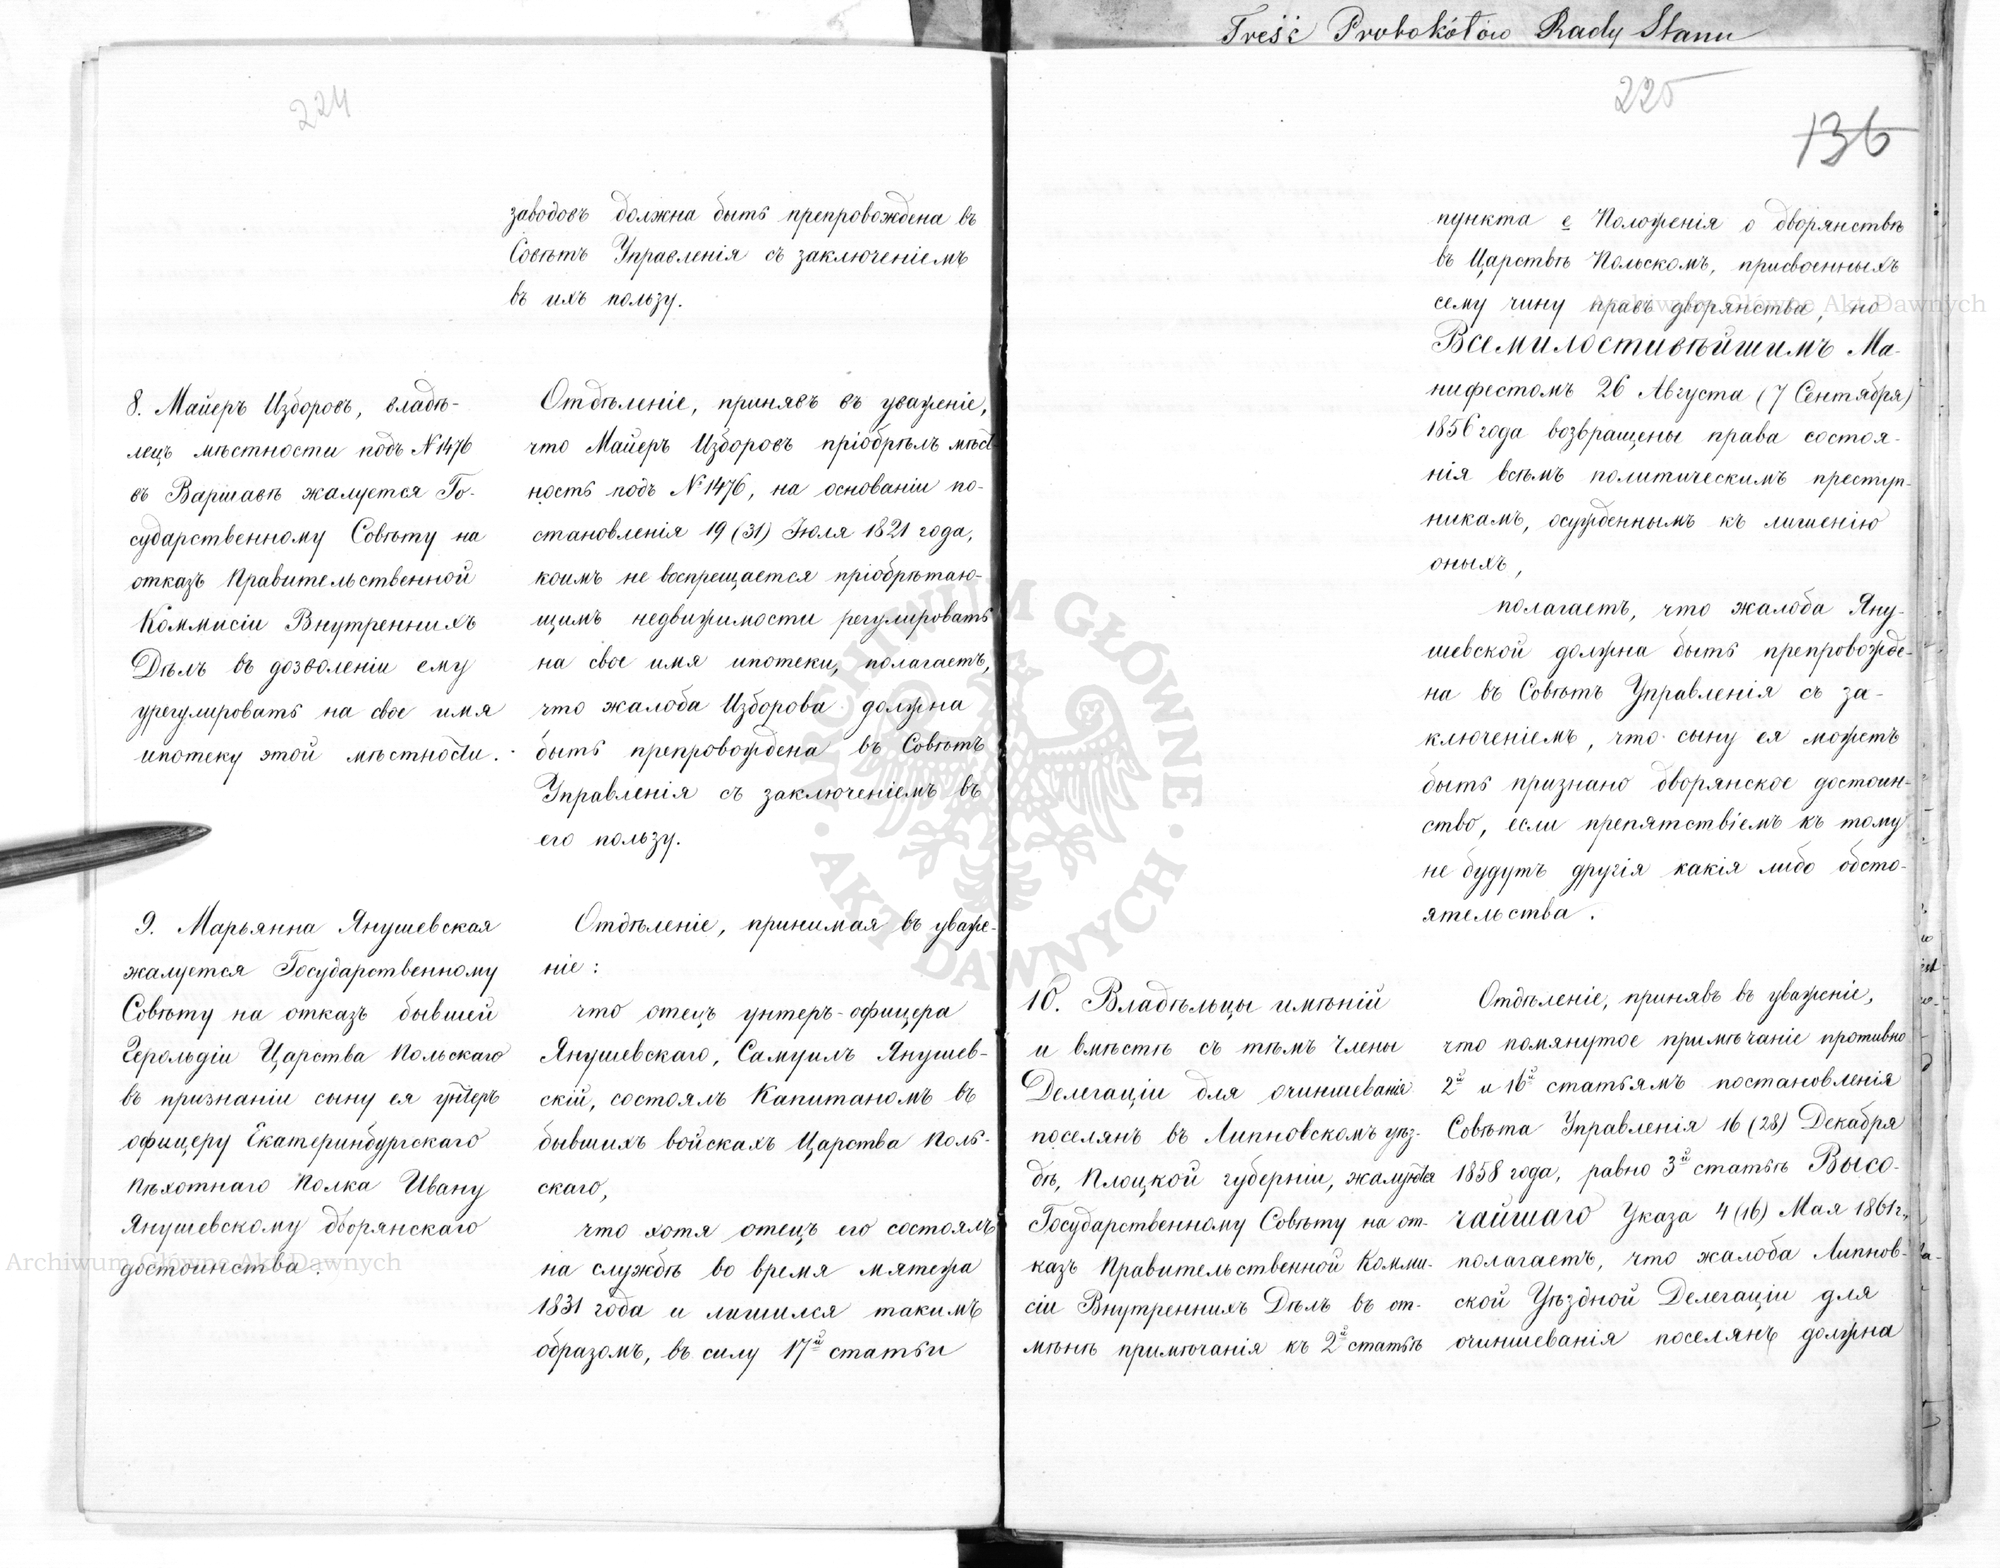 Treść Protokółów Rady Stanu
224
заводовъ должна быть препровождена въ
Совѣтъ Управленія съ заключеніемъ
въ ихъ пользу.
8. Майеръ Изборовъ, владѣ-
лецъ мѣстности подъ №1476
въ Варшавѣ жалуется Го-
сударственному Совѣту на
отказъ Правительственной
Коммисіи Внутреннихъ
Дѣлъ въ дозволеніи ему
урегулировать на свое имя
ипотеку этой мѣстности.
Отдѣленіе, принявъ въ уваженіе,
что Майеръ Изборовъ пріобрѣлъ мѣст-
ность подъ №1476, на основаніи по-
становленія 19 (31) Іюля 1821 года,
коимъ не воспрещается пріобрѣтаю-
щимъ недвижимости регулировать
на свое имя ипотеки, полагаетъ,
что жалоба Изборова должна
быть препровождена въ Совѣтъ
Управленія съ заключеніемъ въ
его пользу.
9. Марьянна Янушевская
жалуется Государственному
Совѣту на отказъ бывшей
Герольдіи Царства Польскаго
въ признаніи сыну ея унтеръ
офицеру Екатеринбургскаго
Пѣхотнаго Полка Ивану
Янушевскому дворянскаго
достоинства.
Отдѣленіе, принимая въ уваже-
ніе:
что отецъ унтеръ-офицера
Янушевскаго, Самуилъ Янушев-
скій, состоялъ Капитаномъ въ
бывшихъ войскахъ Царства Поль-
скаго,
что хотя отецъ его состоялъ
на службѣ во время мятежа
1831 года и лишился такимъ
образомъ, въ силу 17й статьи
225
136
пункта е Положенія о дворянствѣ
въ Царствѣ Польскомъ, присвоенныхъ
сему чину правъ дворянства, но
Всемилостивѣйшимъ Ма-
нифестомъ 26 Августа (7 Сентября)
1856 года возвращены права состоя-
нія всѣмъ политическимъ преступ-
никамъ, осужденнымъ къ лишенію
оныхъ,
полагаетъ, что жалоба Яну-
шевской должна быть препровожде-
на въ Совѣтъ Управленія съ за-
ключеніемъ, что сыну ея можетъ
быть признано дворянское достоин-
ство, если препятствіемъ къ тому
не будутъ другія какія либо обсто-
ятельства.
10. Владѣльцы имѣній
и вмѣстѣ съ тѣмъ Члены
Делегаціи для очиншеванія
поселянъ въ Липновскомъ уѣз-
дѣ, Плоцкой губерніи, жалуются
Государственному Совѣту на от-
казъ Правительственной Комми-
сіи Внутреннихъ Дѣлъ въ от-
мѣнѣ примѣчанія къ 2й статьѣ
Отдѣленіе, принявъ въ уваженіе,
что помянутое примѣчаніе противно
2й и 16й статьямъ постановленія
Совѣта Управленія 16 (28) Декабря
1858 года, равно 3й статьѣ Высо-
чайшаго Указа 4 (16) Мая 1861 г.,
полагаетъ, что жалоба Липнов-
ской Уѣздной Делегаціи для
очиншеванія поселянъ должна
Archiwum Główne Akt Dawnych
Archiwum Główne Akt Dawnych
ARCHIWUM GŁÓWNE
AKT DAWNYCH